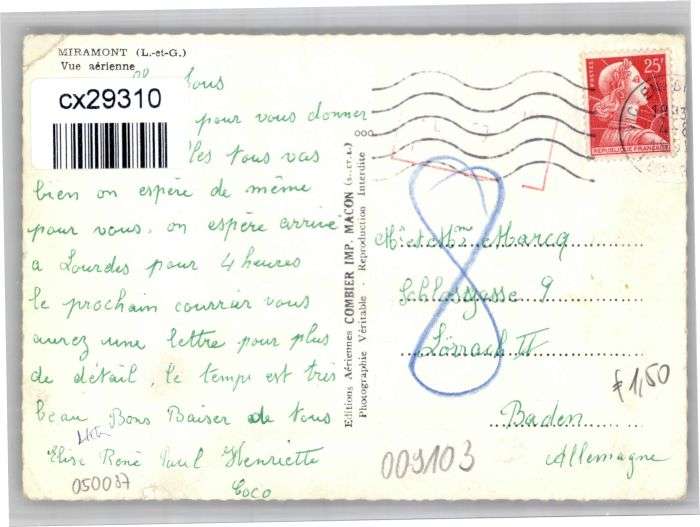 MIRAMONT (L.-et-G.)
Vue aérienne
cx29310
tous
pour vous donner
les tous vas
bien on espère de même
pour vous. on espère arrivé
a Lourdes pour 4 heures
le prochain courrier vous
aurez une lettre pour plus
de détail. le temps est très
beau Bons Baiser de tous
Elise René Paul Henriette
Coco
050087
Editions Aériennes COMBIER IMP. MACON (S.-et-L.)
Photographie Véritable - Reproduction Interdite
POSTES
25F
REPUBLIQUE FRANCAISE
Mr et Mme Marcq
Schlosgasse 9
Lörrach II
Baden
Allemagne
8
1,50
009103